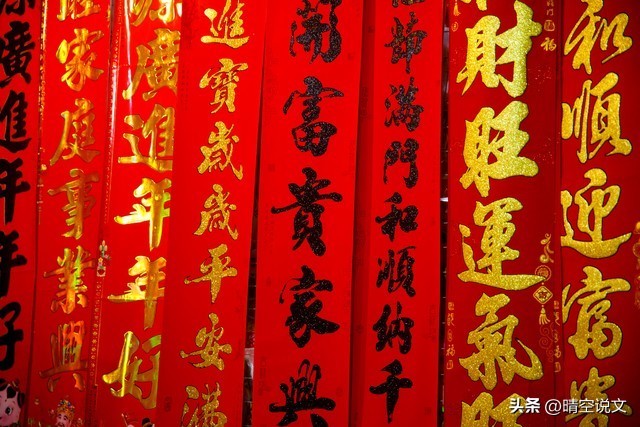 和順迎富貴
財旺運氣旺
滿門和順納千
開富貴家興
進寶歲歲平安滿
廣進年年好
家庭事業興
廣進年年好
头条 @晴空说文